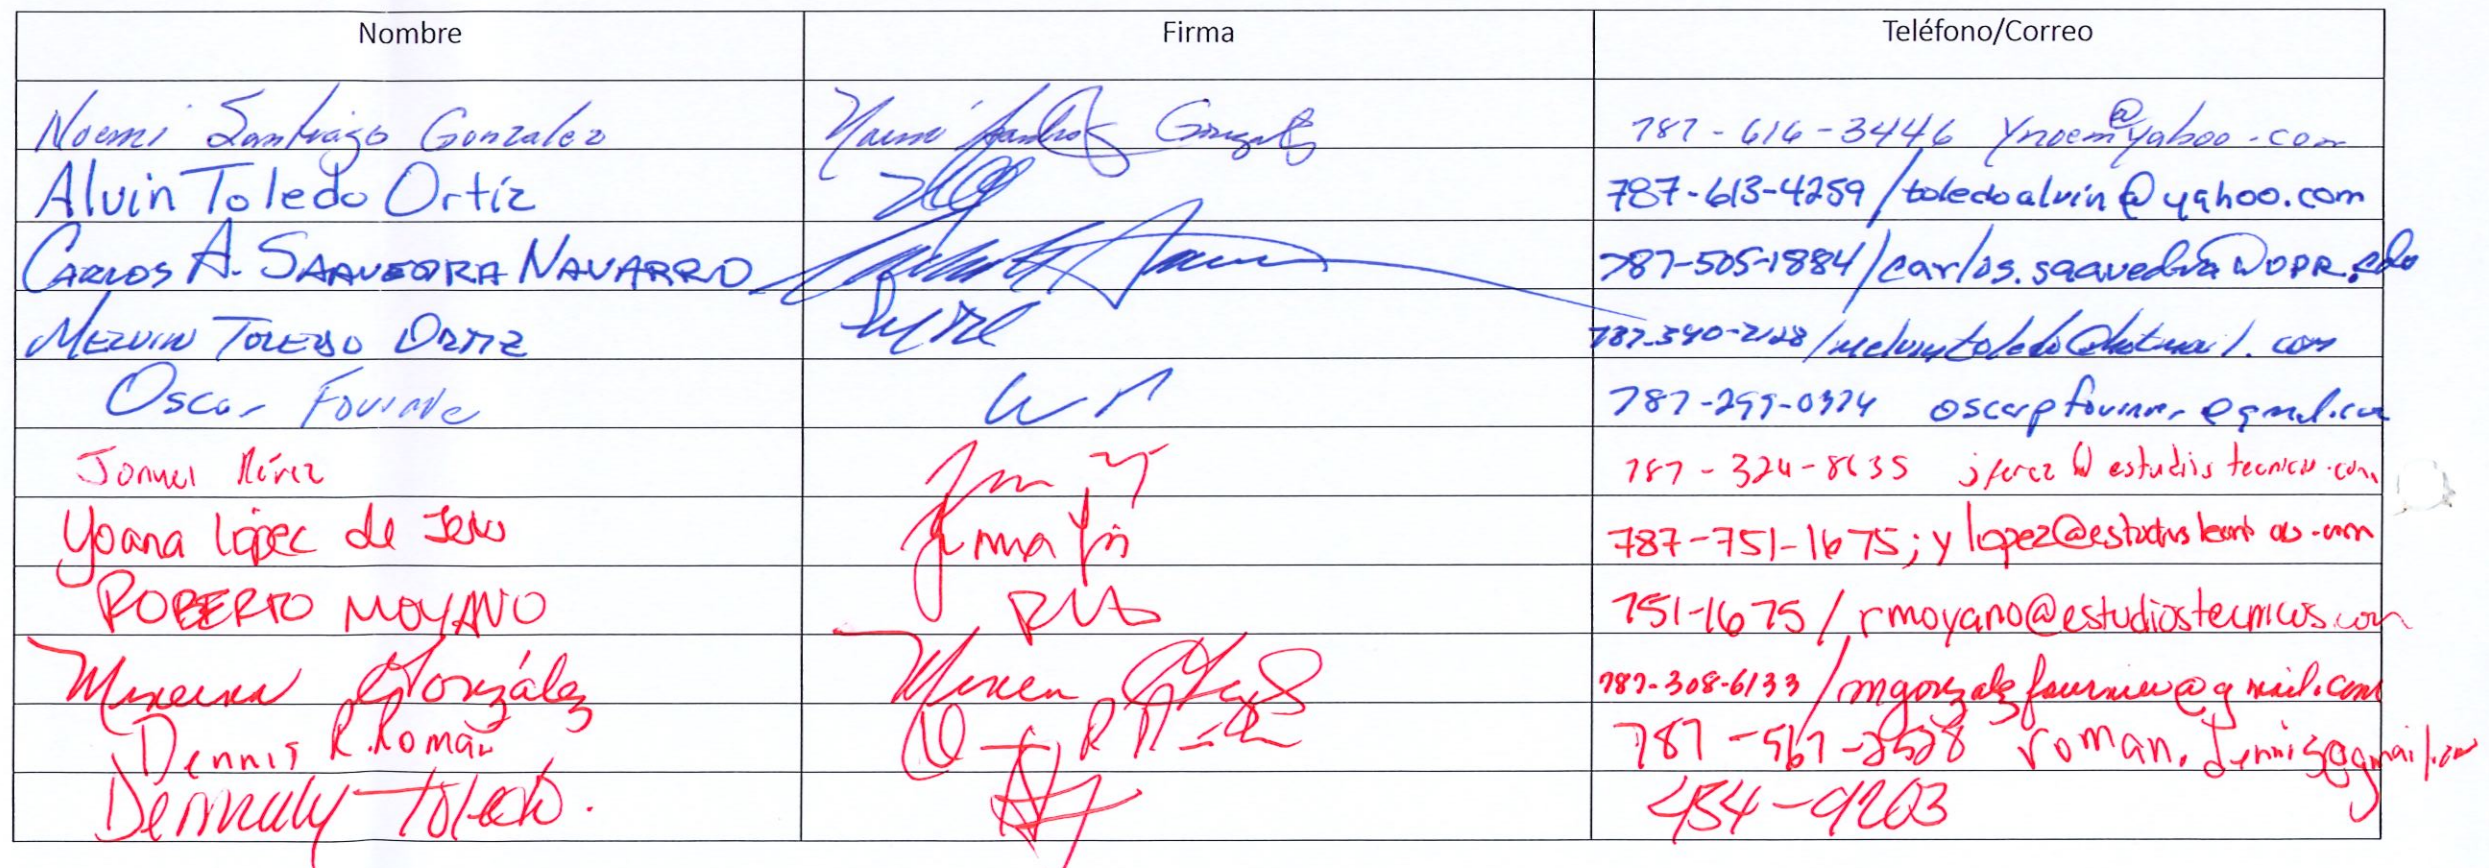 Nombre Firma Teléfono/Correo
Noemi Santiago Gonzalez Noemi Santiago Gonzalez 787-616-3446 ynoem@yahoo.com
Alvin Toledo Ortiz 787-613-4259 / toledoalvin@yahoo.com
CARLOS A. SAAVEDRA NAVARRO 787-505-1884 / carlos.saavedra@upr.edu
MELVIN TOLEDO ORTIZ / melvintoledo@hotmail.com
Oscar Fournie 787-299-0374
Jonuel Pérez 787-324-8635 jperez@estudiostecnicos.com
Yoana López de Jesús 787-751-1675; ylopez@estudiostecnicos.com
ROBERTO MOYANO RM 751-1675 / rmoyano@estudiostecnicos.com
González 787-308-6133 / mgonzalezfournier@gmail.com
Dennis R. Román roman.dennis@gmail.com
Toledo. 454-9203